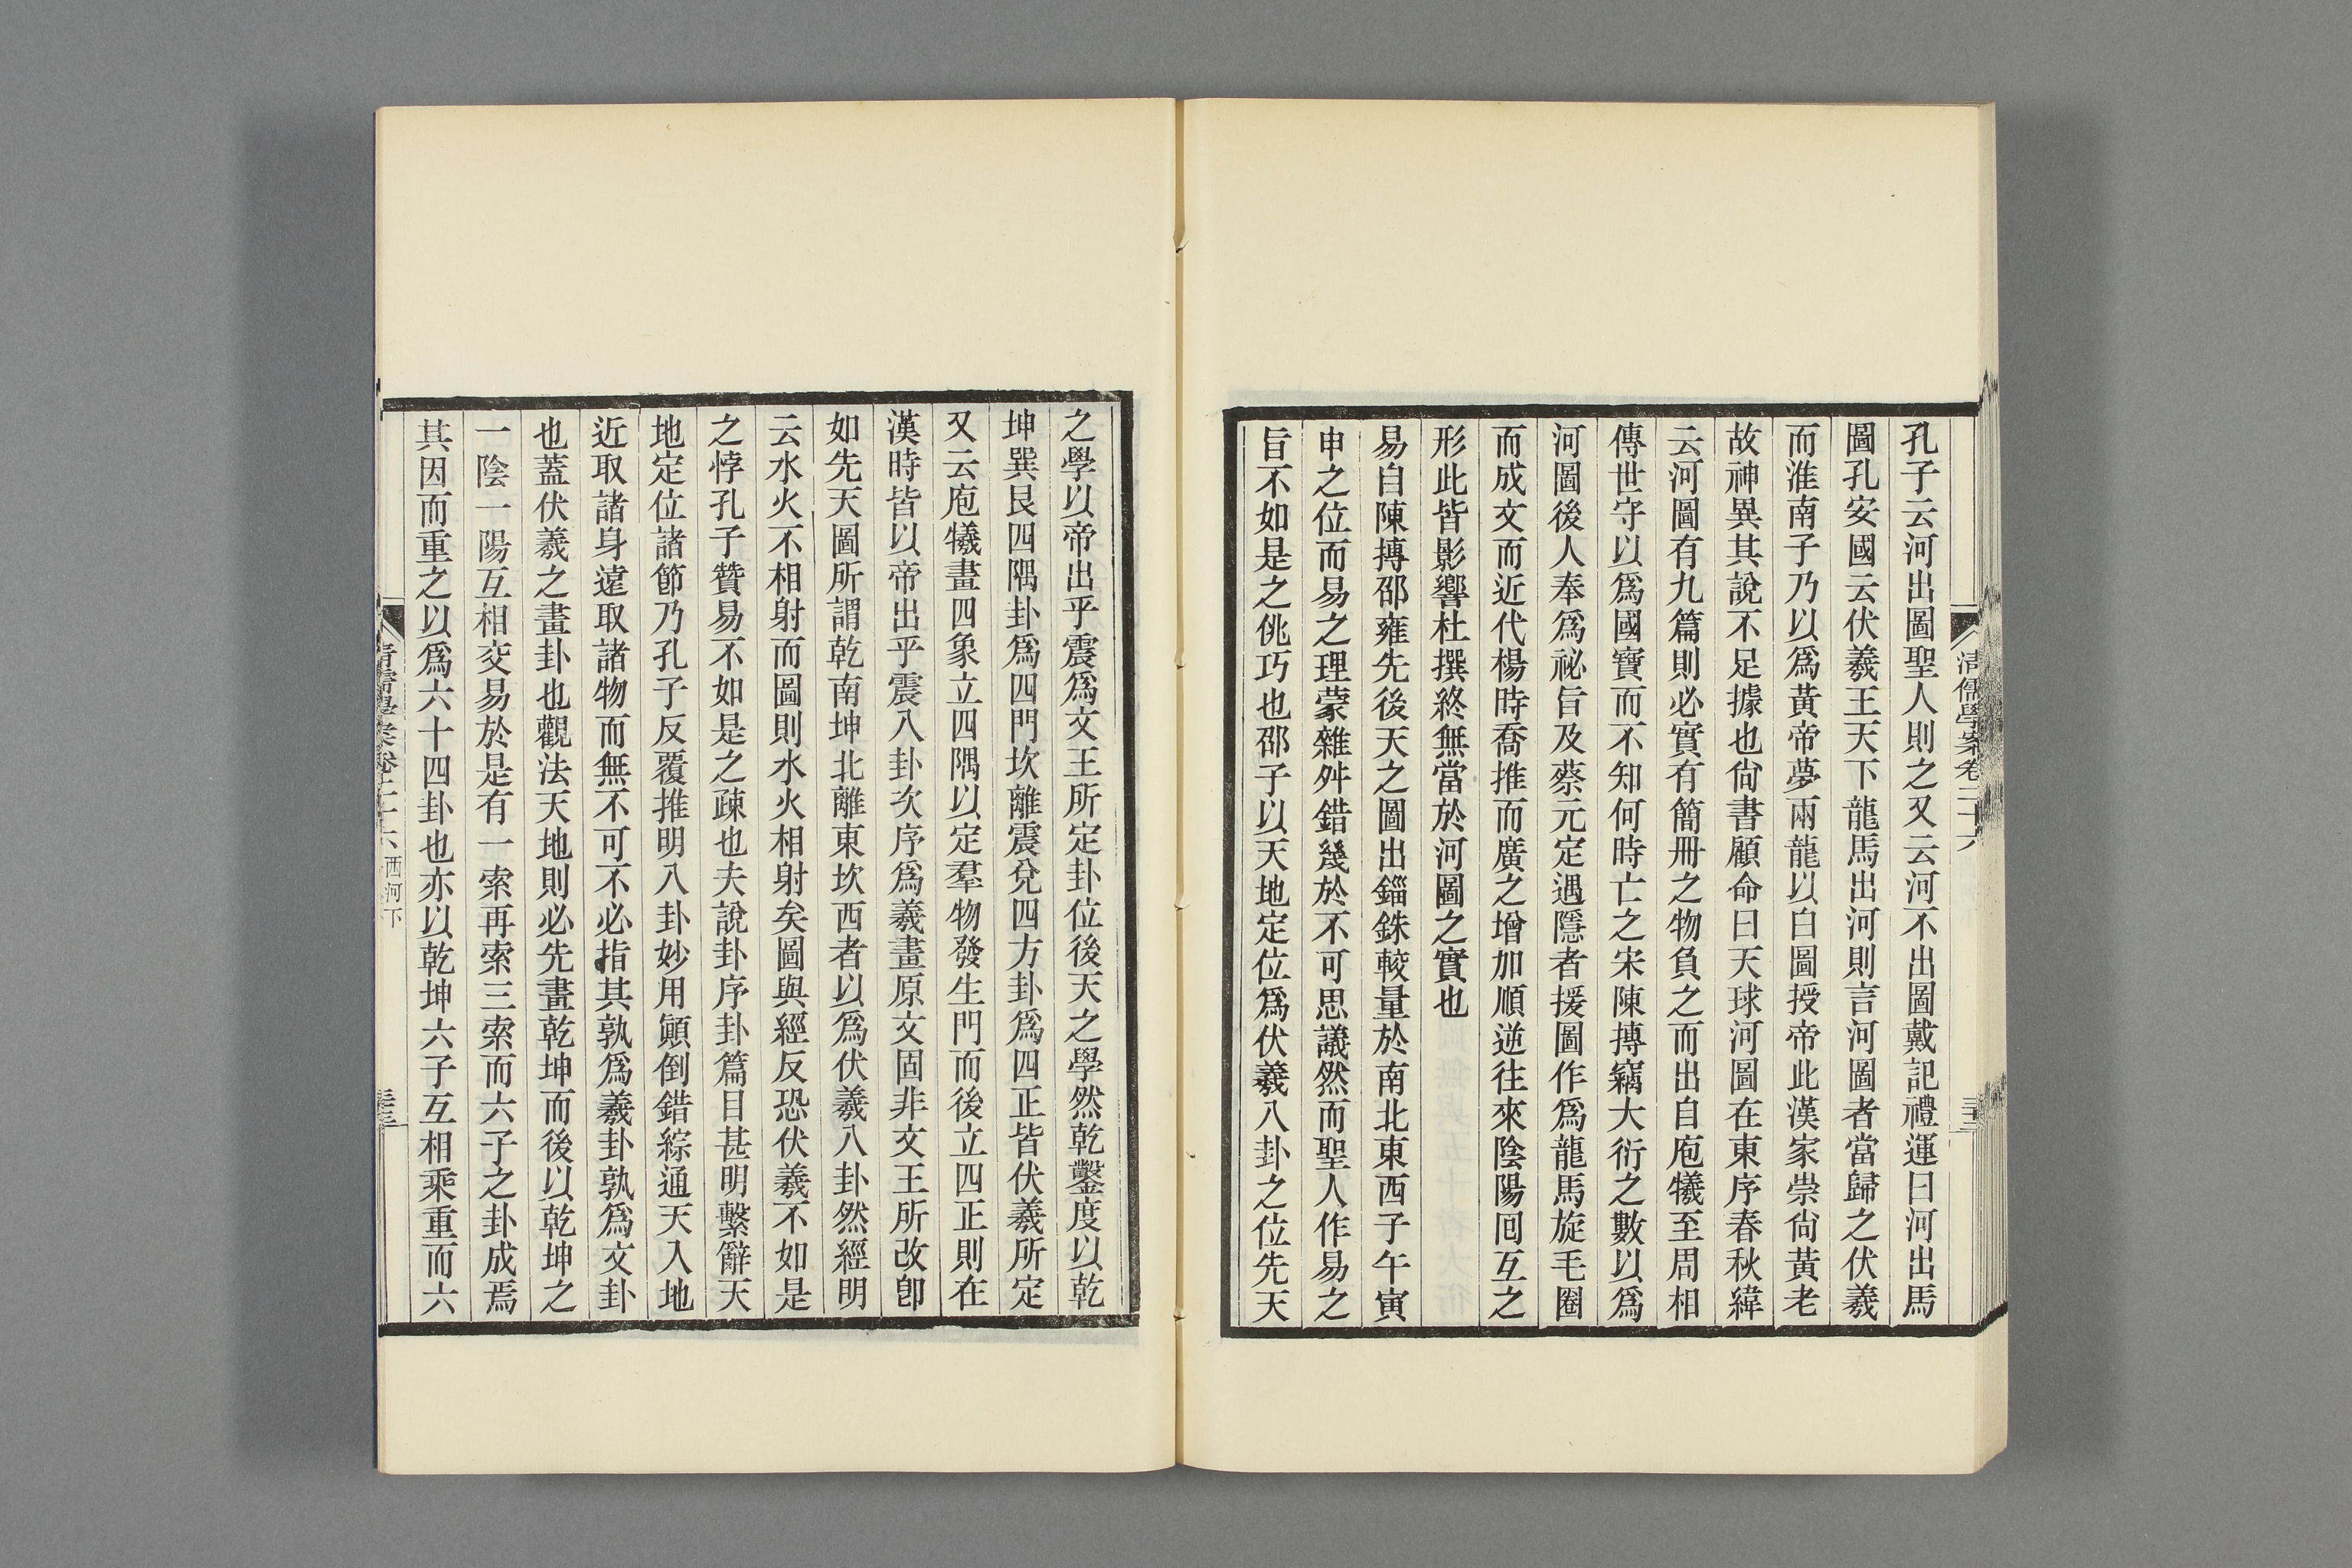 孔子云河出圖聖人則之又云河不出圖戴記禮運曰河出馬
圖孔安國云伏羲王天下龍馬出河則言河圖者當歸之伏羲
而淮南子乃以爲黃帝夢兩龍以白圖授帝此漢家崇尙黃老
故神異其說不足據也尙書顧命曰天球河圖在東序春秋緯
云河圖有九篇則必實有簡冊之物負之而出自庖犧至周相
傳世守以爲國寶而不知何時亡之宋陳摶竊大衍之數以爲
河圖後人奉爲祕旨及蔡元定遇隱者援圖作爲龍馬旋毛圈
而成文而近代楊時喬推而廣之增加順逆往來陰陽囘互之
形此皆影響杜撰終無當於河圖之實也
易自陳摶邵雍先後天之圖出錙銖較量於南北東西子午寅
申之位而易之理蒙雜舛錯幾於不可思議然而聖人作易之
旨不如是之佻巧也邵子以天地定位爲伏羲八卦之位先天
清儒學案卷二十六
三十三
之學以帝出乎震爲文王所定卦位後天之學然乾鑿度以乾
坤巽艮四隅卦爲四門坎離震兌四方卦爲四正皆伏羲所定
又云庖犧畫四象立四隅以定羣物發生門而後立四正則在
漢時皆以帝出乎震八卦次序爲羲畫原文固非文王所改卽
如先天圖所謂乾南坤北離東坎西者以爲伏羲八卦然經明
云水火不相射而圖則水火相射矣圖與經反恐伏羲不如是
之悖孔子贊易不如是之疎也夫說卦序卦篇目甚明繫辭天
地定位諸節乃孔子反覆推明八卦妙用顚倒錯綜通天入地
近取諸身遠取諸物而無不可不必指其孰爲羲卦孰爲文卦
也蓋伏羲之畫卦也觀法天地則必先畫乾坤而後以乾坤之
一陰一陽互相交易於是有一索再索三索而六子之卦成焉
其因而重之以爲六十四卦也亦以乾坤六子互相乘重而六
清儒學案卷二十六 西河下